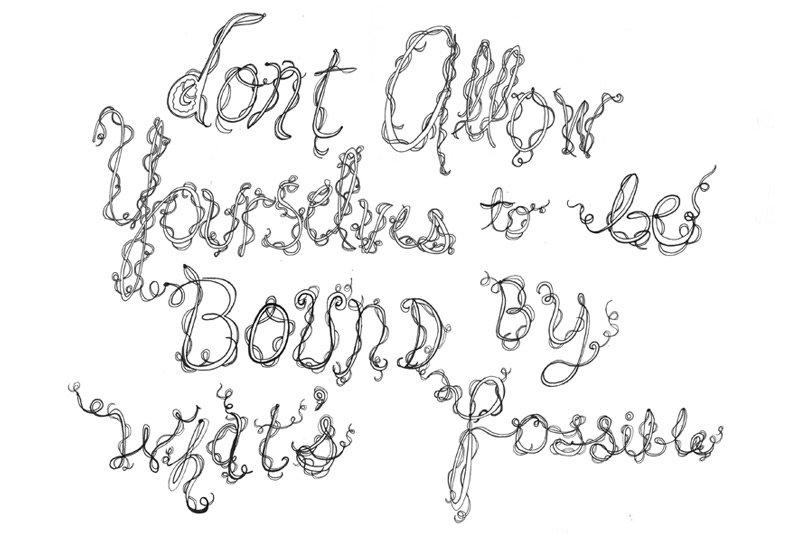 dont Allow
Yourselves to be
BOUND By
what's possible